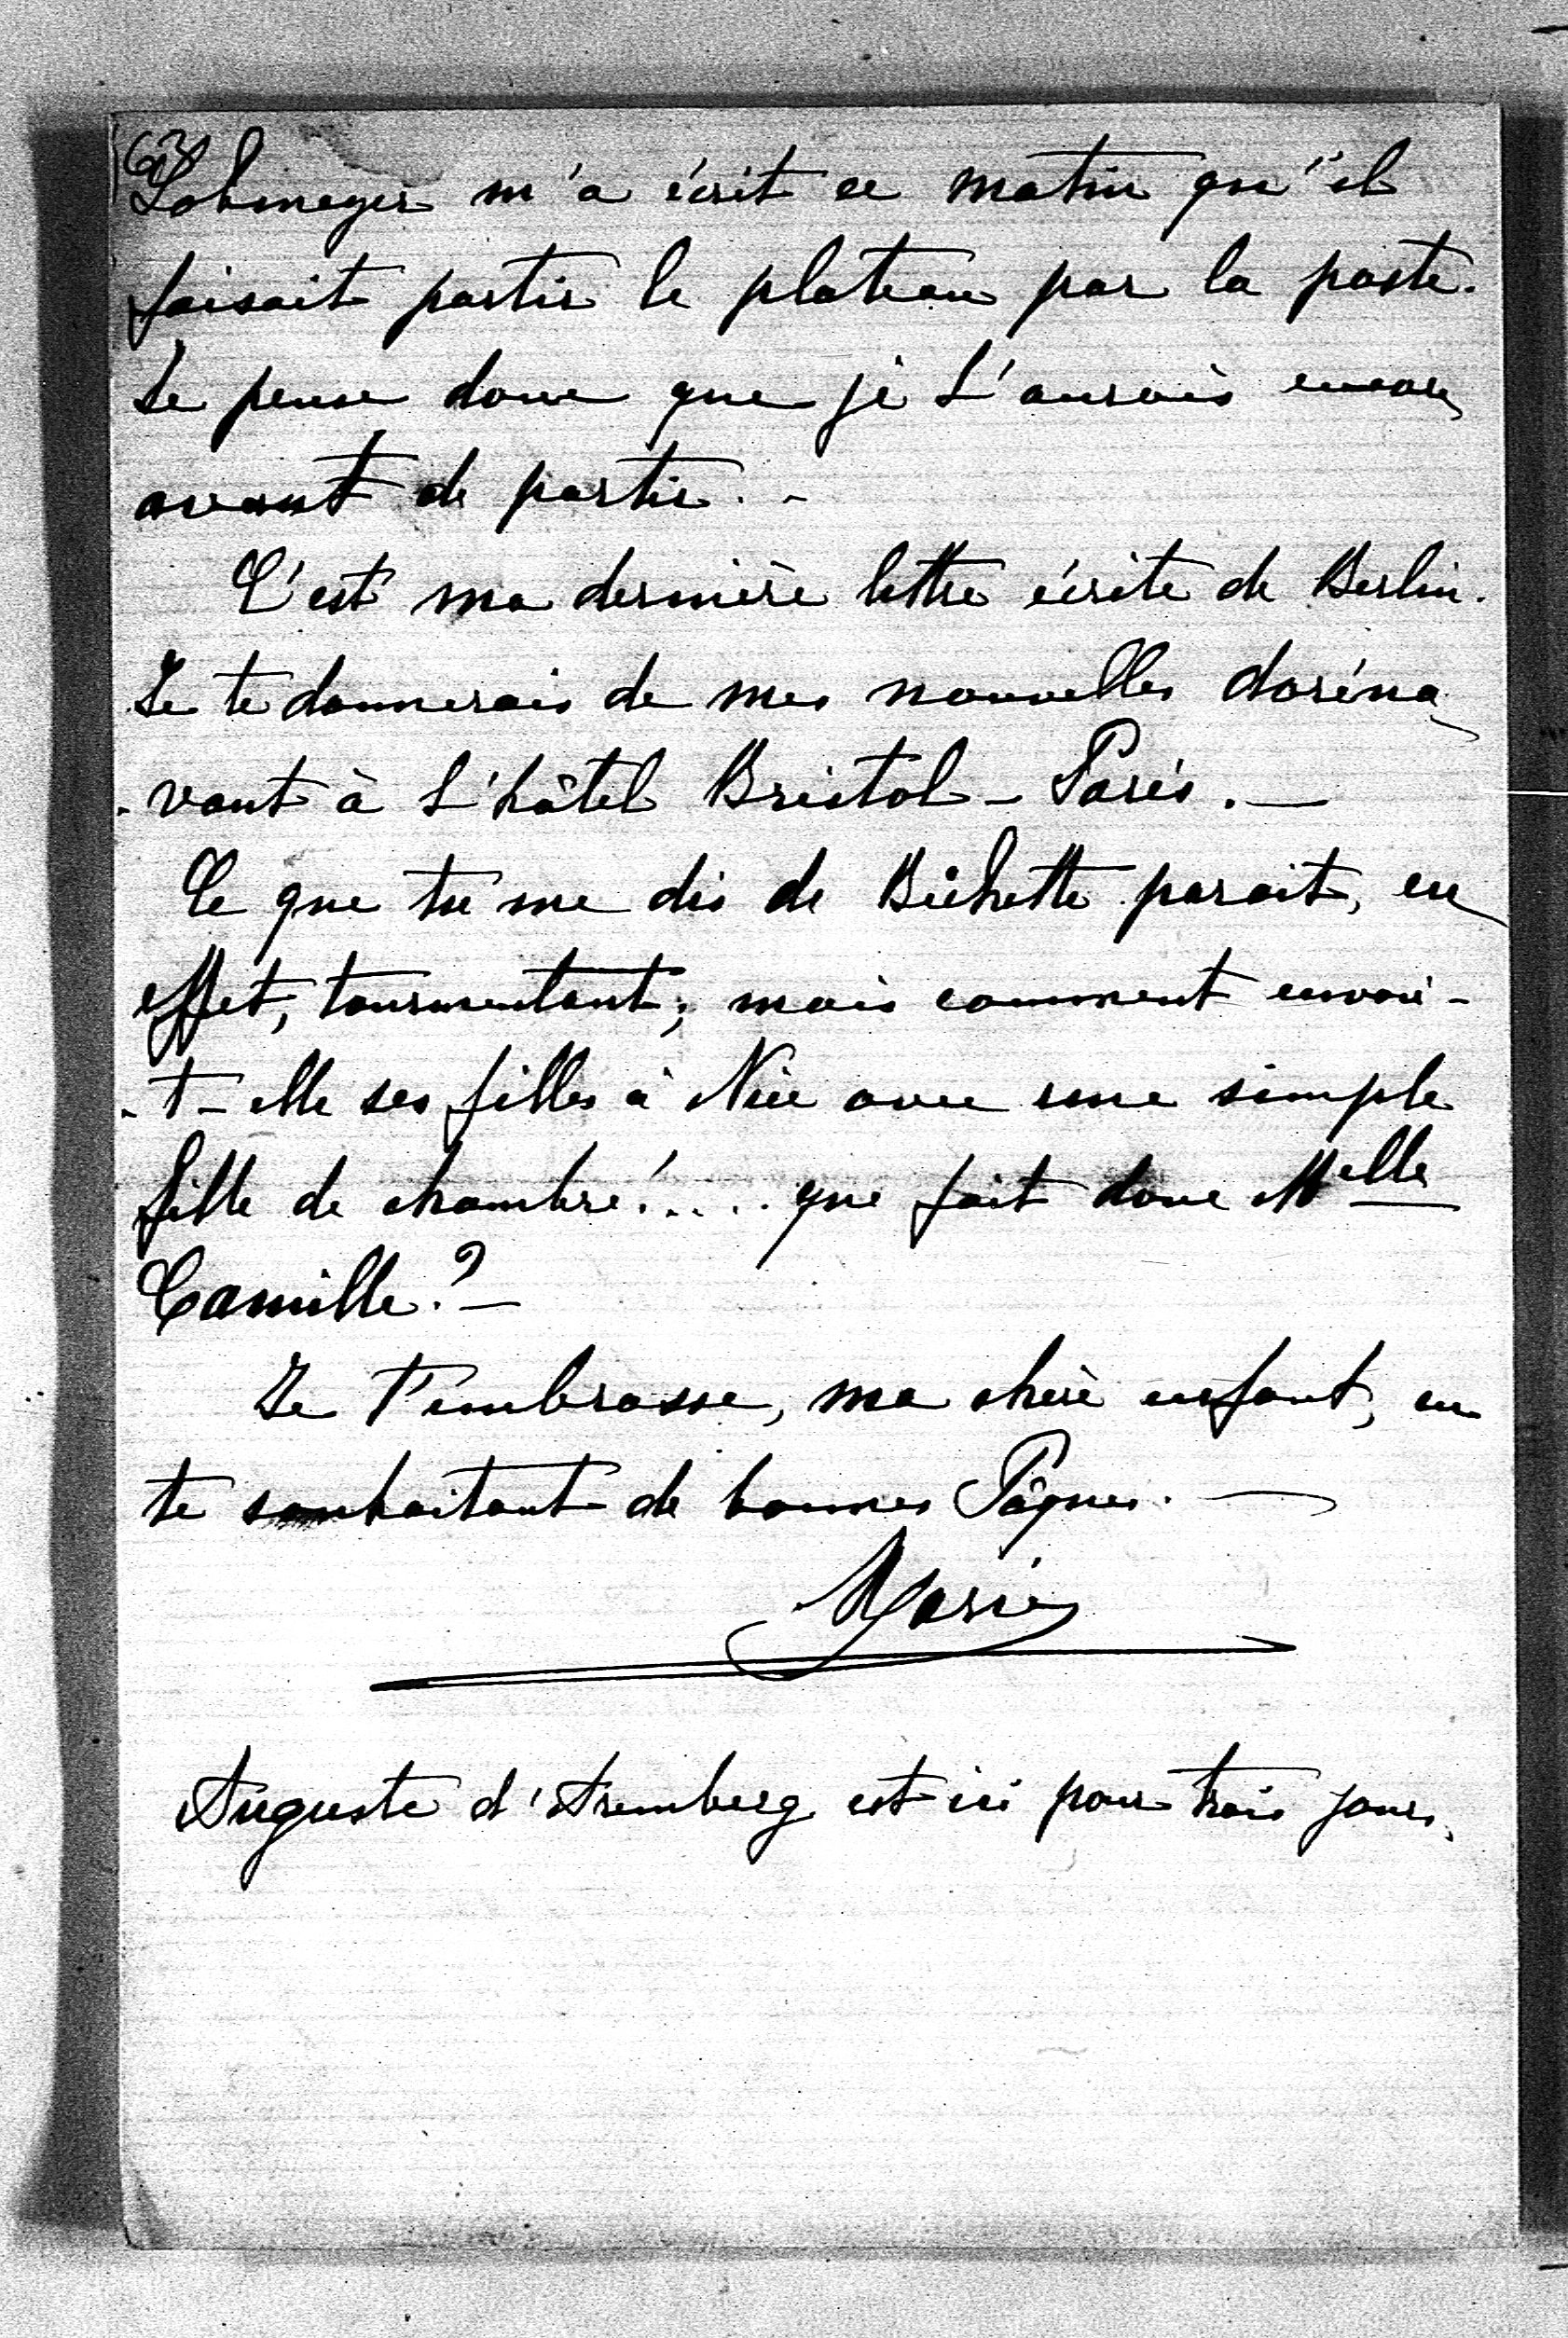 63
Lobmeyer m'a écrit ce matin qu'il
faisait partir le plateau par la poste.
Je pense donc que je l'aurais encore
avant de partir. -
C'est ma dernière lettre écrite de Berlin.
Je te donnerais de mes nouvelles doréna
-vant à l'hôtel Bristol - Paris. —
Ce que tu me dis de Bichette parait, en
effet, tourmentant; mais comment envoi-
-t-elle ses filles à Nice avec une simple
fille de chambre!..... que fait donc Melle
Camille? —
Je t'embrasse, ma chère enfant, en
te souhaitant de bonnes Pâques. —
Marie
Auguste d'Aremberg est ici pour trois jours.